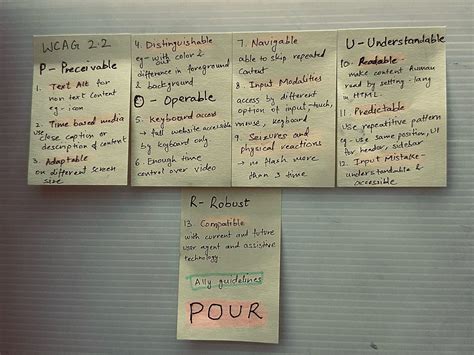 WCAG 2.2
P - Preceivable
1. Text Alt for
non text content
eg - icon
2. Time based media
use close caption or
description of content
3. Adaptable
on different screen
size
4. Distinguishable
eg - with out color &
difference in foreground
& background
O - Operable
5. Keyboard access
→ full website accessible
by keyboard only
6. Enough time
control over video
7. Navigable
able to skip repeated
Content
8. Input Modalities
access by different
option of input - touch,
mouse, keyboard
9. Seizures and
physical reactions
→ no flash more
than 3 time
U - Understandable
10. Readable -
make content human
read by setting - lang
in HTML.
11. Predictable
Use repeatitive pattern
eg - use same position, UI
for header, sidebar
12. Input Mistake -
understandable &
accessible
R - Robust
13. Compatible
with current and future
user agent and assistive
technology
A11y guidelines
POUR